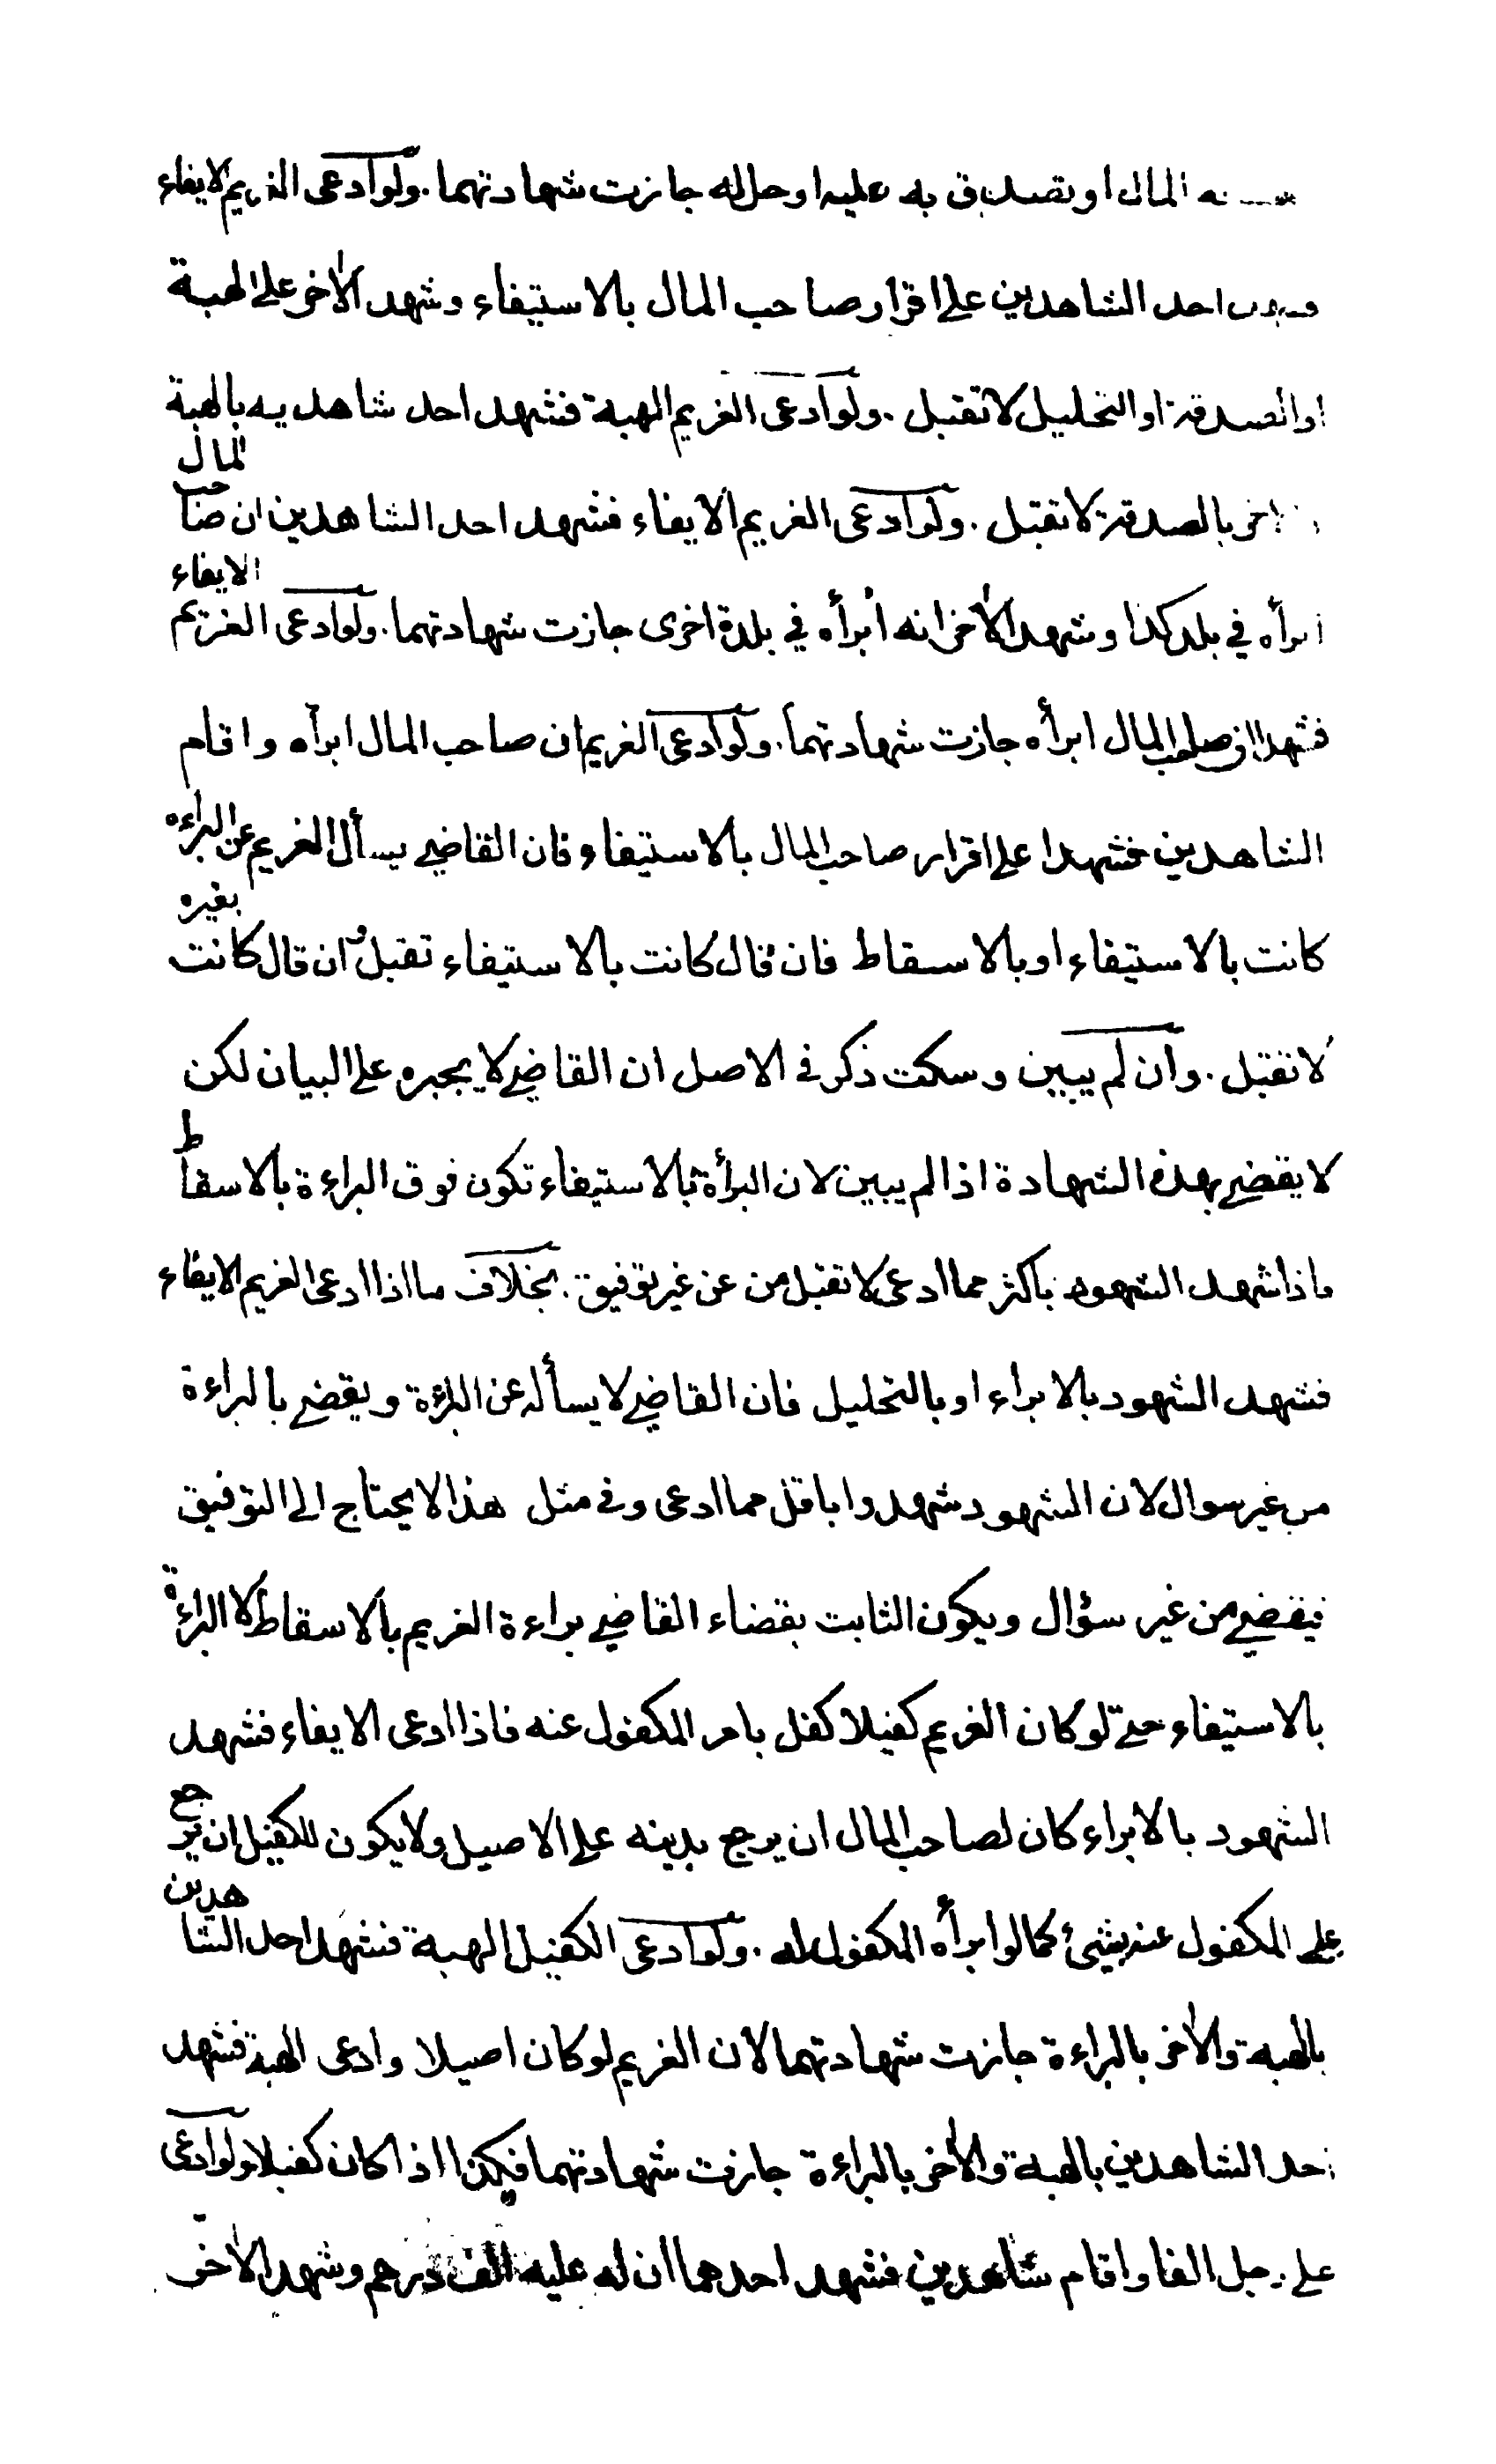 المال او تصدق به عليه او حلله جازت شهادتهما . ولو ادعى الغريم الايفاء
احد الشاهدين على اقرار صاحب المال بالاستيفاء وشهد الآخر على الهبة
او الصدقة او التحليل لا تقبل . ولو ادعى الغريم الهبة فشهد احد شاهديه بالهبة
والاخر بالصدقة لا تقبل . ولو ادعى الغريم الايفاء فشهد احد الشاهدين ان صاحب المال
ابرأه في بلد كذا وشهد الآخر انه أبرأه في بلدة اخرى جازت شهادتهما . ولو ادعى الغريم الايفاء
فشهدا ان صاحب المال ابرأه جازت شهادتهما . ولو ادعى الغريم ان صاحب المال ابرآه واقام
الشاهدين فشهدا على اقرار صاحب المال بالاستيفاء فان القاضي يسأل الغريم عن البراءه
كانت بالاستيفاء او بالاسقاط فان قال كانت بالاستيفاء تقبل و ان قال كانت بغيره
لا تقبل . وان لم يبين وسكت ذكر في الاصل ان القاضي لا يجبره على البيان لكن
لا يقضي بهذه الشهادة اذا لم يبين لان البرأة بالاستيفاء تكون فوق البراءة بالاسقاط
فاذا شهد الشهود باكثر مما ادعى لا تقبل من عن غير توفيق . بخلاف ما اذا ادعى الغريم الايفاء
فشهد الشهود بالابراء او بالتحليل فان القاضي لا يسأله عن البراءة ويقضي بالبراءة
من غير سوال لان الشهود شهدوا باقل مما ادعى وفي مثل هذا لا يحتاج الى التوفيق
فيقضي من غير سؤال ويكون الثابت بقضاء القاضي براءة الغريم بالاسقاط لا البراءة
بالاستيفاء حتى لو كان الغريم كفيلا كفل بامر المكفول عنه فاذا ادعى الايفاء فشهد
الشهود بالابراء كان لصاحب المال ان يرجع بدينه على الاصيل ولا يكون للكفيل ان يرجع
على المكفول عنه بشيئ كما لو ابرأه المكفول له . ولو ادعى الكفيل الهبة فشهد احد الشاهدين
بالهبة والآخر بالبراءة جازت شهادتهما لان الغريم لو كان اصيلا وادعى الهبة فشهد
احد الشاهدين بالهبة والآخر بالبراءة جازت شهادتهما فكذا اذا كان كفيلا ولو ادعى
على رجل الفا واقام شاهدين فشهد احدهما ان له عليه الف درهم وشهد الآخر